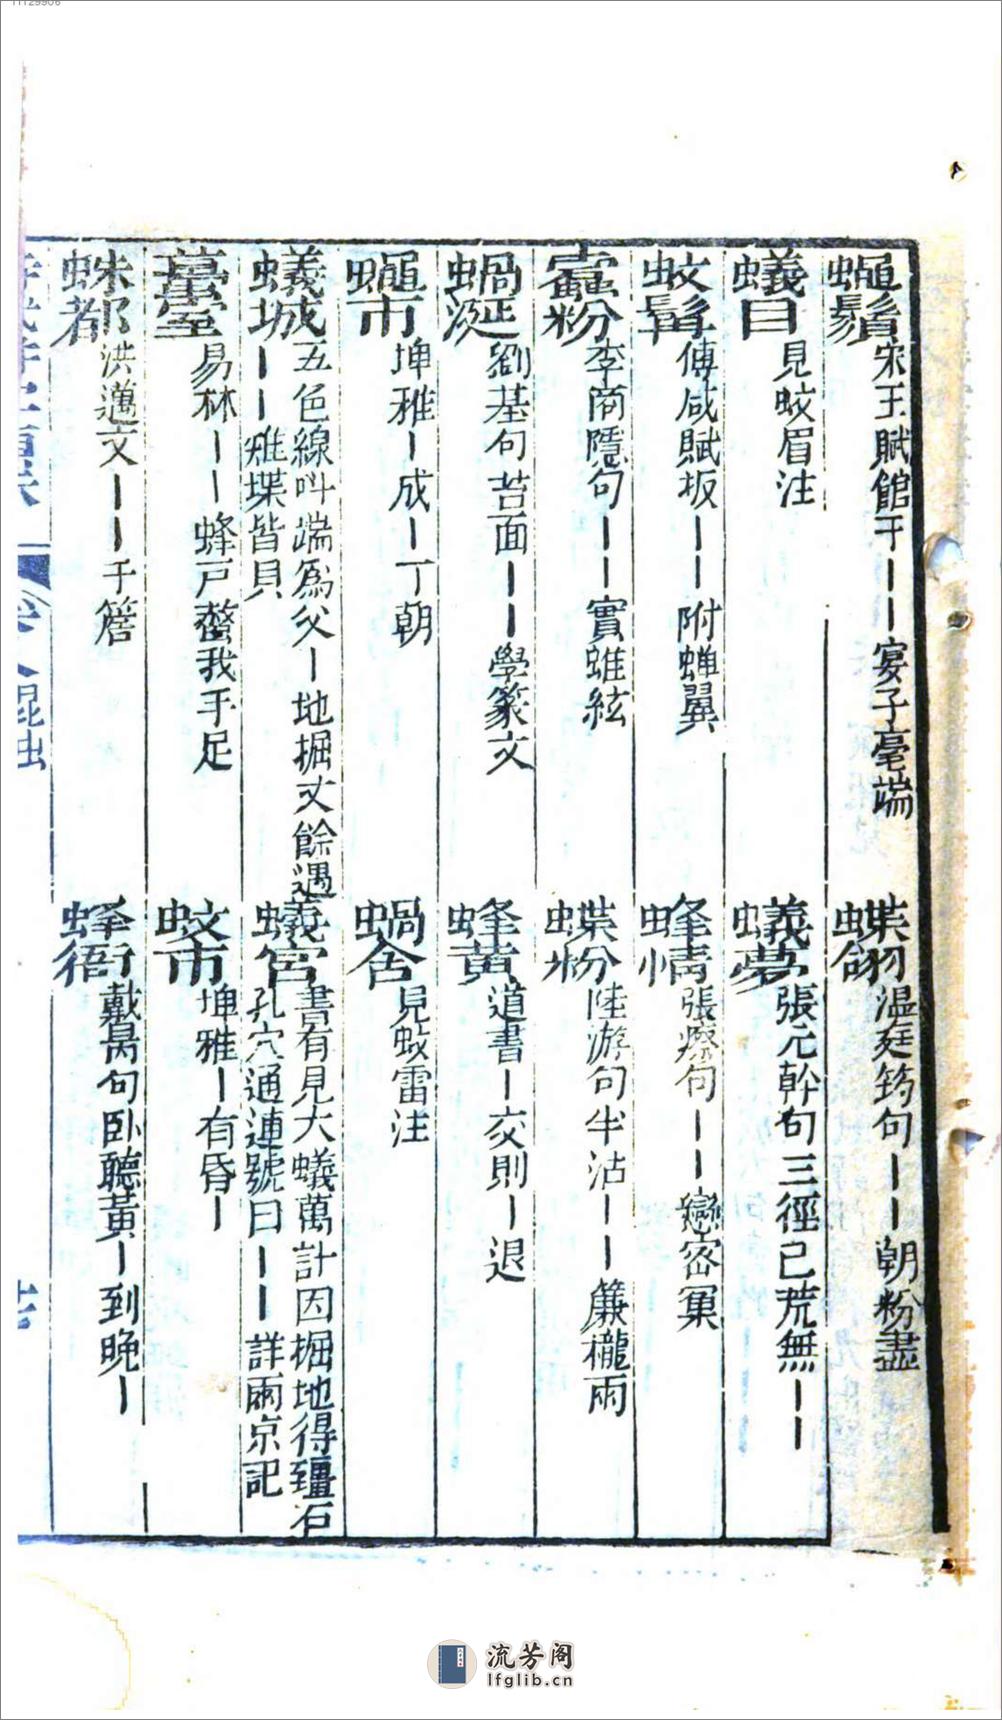 蠅鬚 宋玉賦館于丨丨宴子毫端
蝶翎 温庭筠句丨丨朝粉盡
蟻目 見蚊眉注
蟻夢 張元幹句三徑已荒無丨丨
蚊髯 傅咸賦扳丨丨附蝉翼
蜂情 張療句丨丨戀密菓
蠧粉 李商隱句丨丨實蜼絃
蝶粉 陸游句半沾丨丨簾櫳雨
蝸涎 劉基句苔面丨丨學篆文
蜂黄 道書丨交則丨退
蠅市 埤雅丨成丨丁朝
蝸舍 見蚊雷注
蟻城 五色線叫端爲父丨地掘丈餘遇
丨丨雉堞皆具
蟻宮 書有見大蟻萬計因掘地得彊石
孔穴通連號曰丨丨詳兩京記
易林丨丨蜂戸螫我手足
蚊市 埤雅丨有昏丨
蛛都 洪邁文丨丨于簷
蜂衙 戴昺句卧聽黃丨到晚丨
昆虫
流芳阁
lfglib.cn
11129906